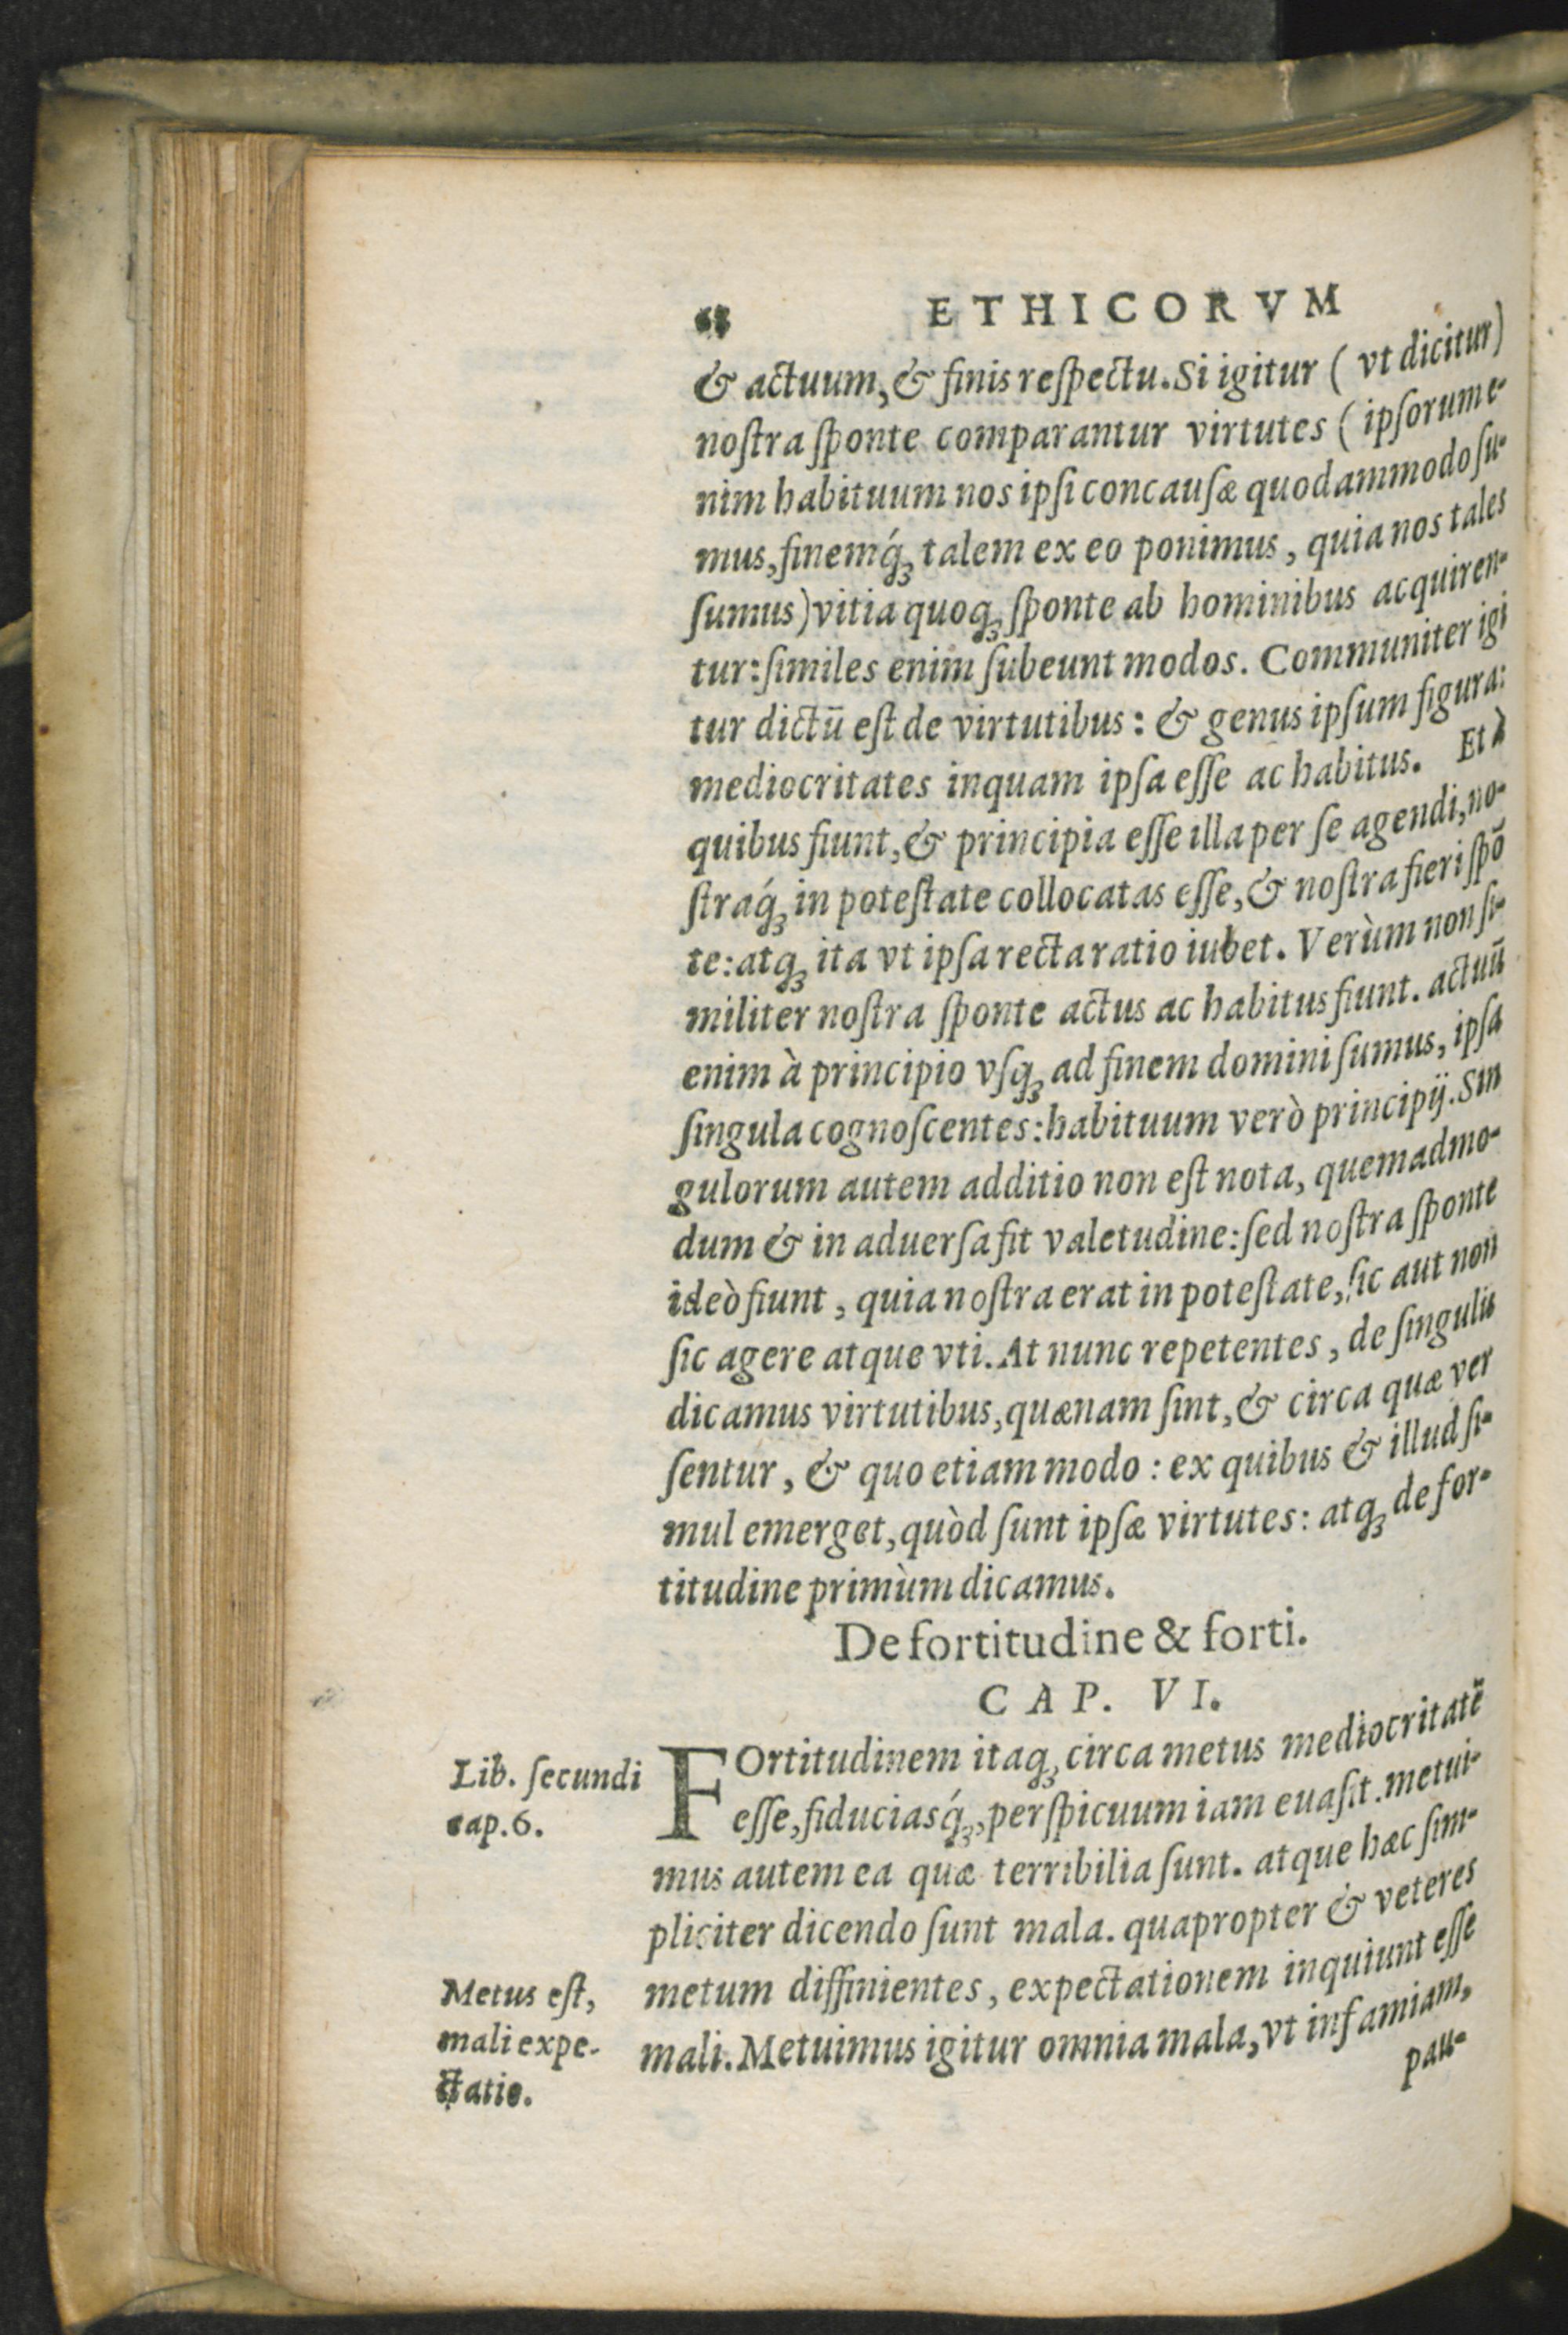 ETHICORVM
& actuum, & finis reſpectu. Si igitur ( vt dicitur)
noſtra ſponte comparantur virtutes ( ipſorum e-
nim habituum nos ipſi concauſæ quodammodo ſu-
mus, finemq́ꝫ talem ex eo ponimus, quia nos tales
ſumus) vitia quoqꝫ ſponte ab hominibus acquiren-
tur: ſimiles enim ſubeunt modos. Communiter igi
tur dictū eſt de virtutibus: & genus ipſum figura:
mediocritates inquam ipſa eſſe ac habitus. Et à
quibus fiunt, & principia eſſe illa per ſe agendi, no-
ſtraq́ꝫ in poteſtate collocatas eſſe, & noſtra fieri ſpō
te: atqꝫ ita vt ipſa recta ratio iubet. Verùm non ſi-
militer noſtra ſponte actus ac habitus fiunt. actuū
enim à principio vſqꝫ ad finem domini ſumus, ipſa
ſingula cognoſcentes: habituum verò principij. Sin
gulorum autem additio non eſt nota, quemadmo-
dum & in aduerſa fit valetudine: ſed noſtra ſponte
ideò fiunt, quia noſtra erat in poteſtate, ſic aut non
ſic agere atque vti. At nunc repetentes, de ſingulis
dicamus virtutibus, quænam ſint, & circa quæ ver
ſentur, & quo etiam modo: ex quibus & illud ſi-
mul emerget, quòd ſunt ipſæ virtutes: atqꝫ de for-
titudine primùm dicamus.
De fortitudine & forti.
CAP. VI.
Lib. ſecundi
cap. 6.
FOrtitudinem itaqꝫ circa metus mediocritatē
eſſe, fiduciasq́ꝫ, perſpicuum iam euaſit. metui-
mus autem ea quæ terribilia ſunt. atque hæc ſim-
pliciter dicendo ſunt mala. quapropter & veteres
Metus eſt,
mali expe-
ctatio.
metum diffinientes, expectationem inquiunt eſſe
mali. Metuimus igitur omnia mala, vt infamiam,
pau-